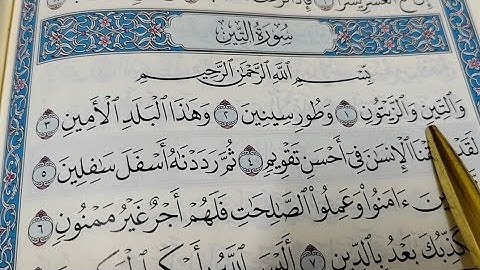 سُورَةُ التِّينِ
بِسْمِ اللَّهِ الرَّحْمَٰنِ الرَّحِيمِ
وَالتِّينِ وَالزَّيْتُونِ ١ وَطُورِ سِينِينَ ٢ وَهَٰذَا الْبَلَدِ الْأَمِينِ ٣
لَقَدْ الْإِنسَٰنَ فِي أَحْسَنِ تَقْوِيمٍ ٤ ثُمَّ رَدَدْنَٰهُ أَسْفَلَ سَٰفِلِينَ ٥
ءَامَنُوا وَعَمِلُوا الصَّٰلِحَٰتِ فَلَهُمْ أَجْرٌ غَيْرُ مَمْنُونٍ ٦
يُكَذِّبُكَ بَعْدُ بِالدِّينِ ٧ أَلَيْسَ اللَّهُ